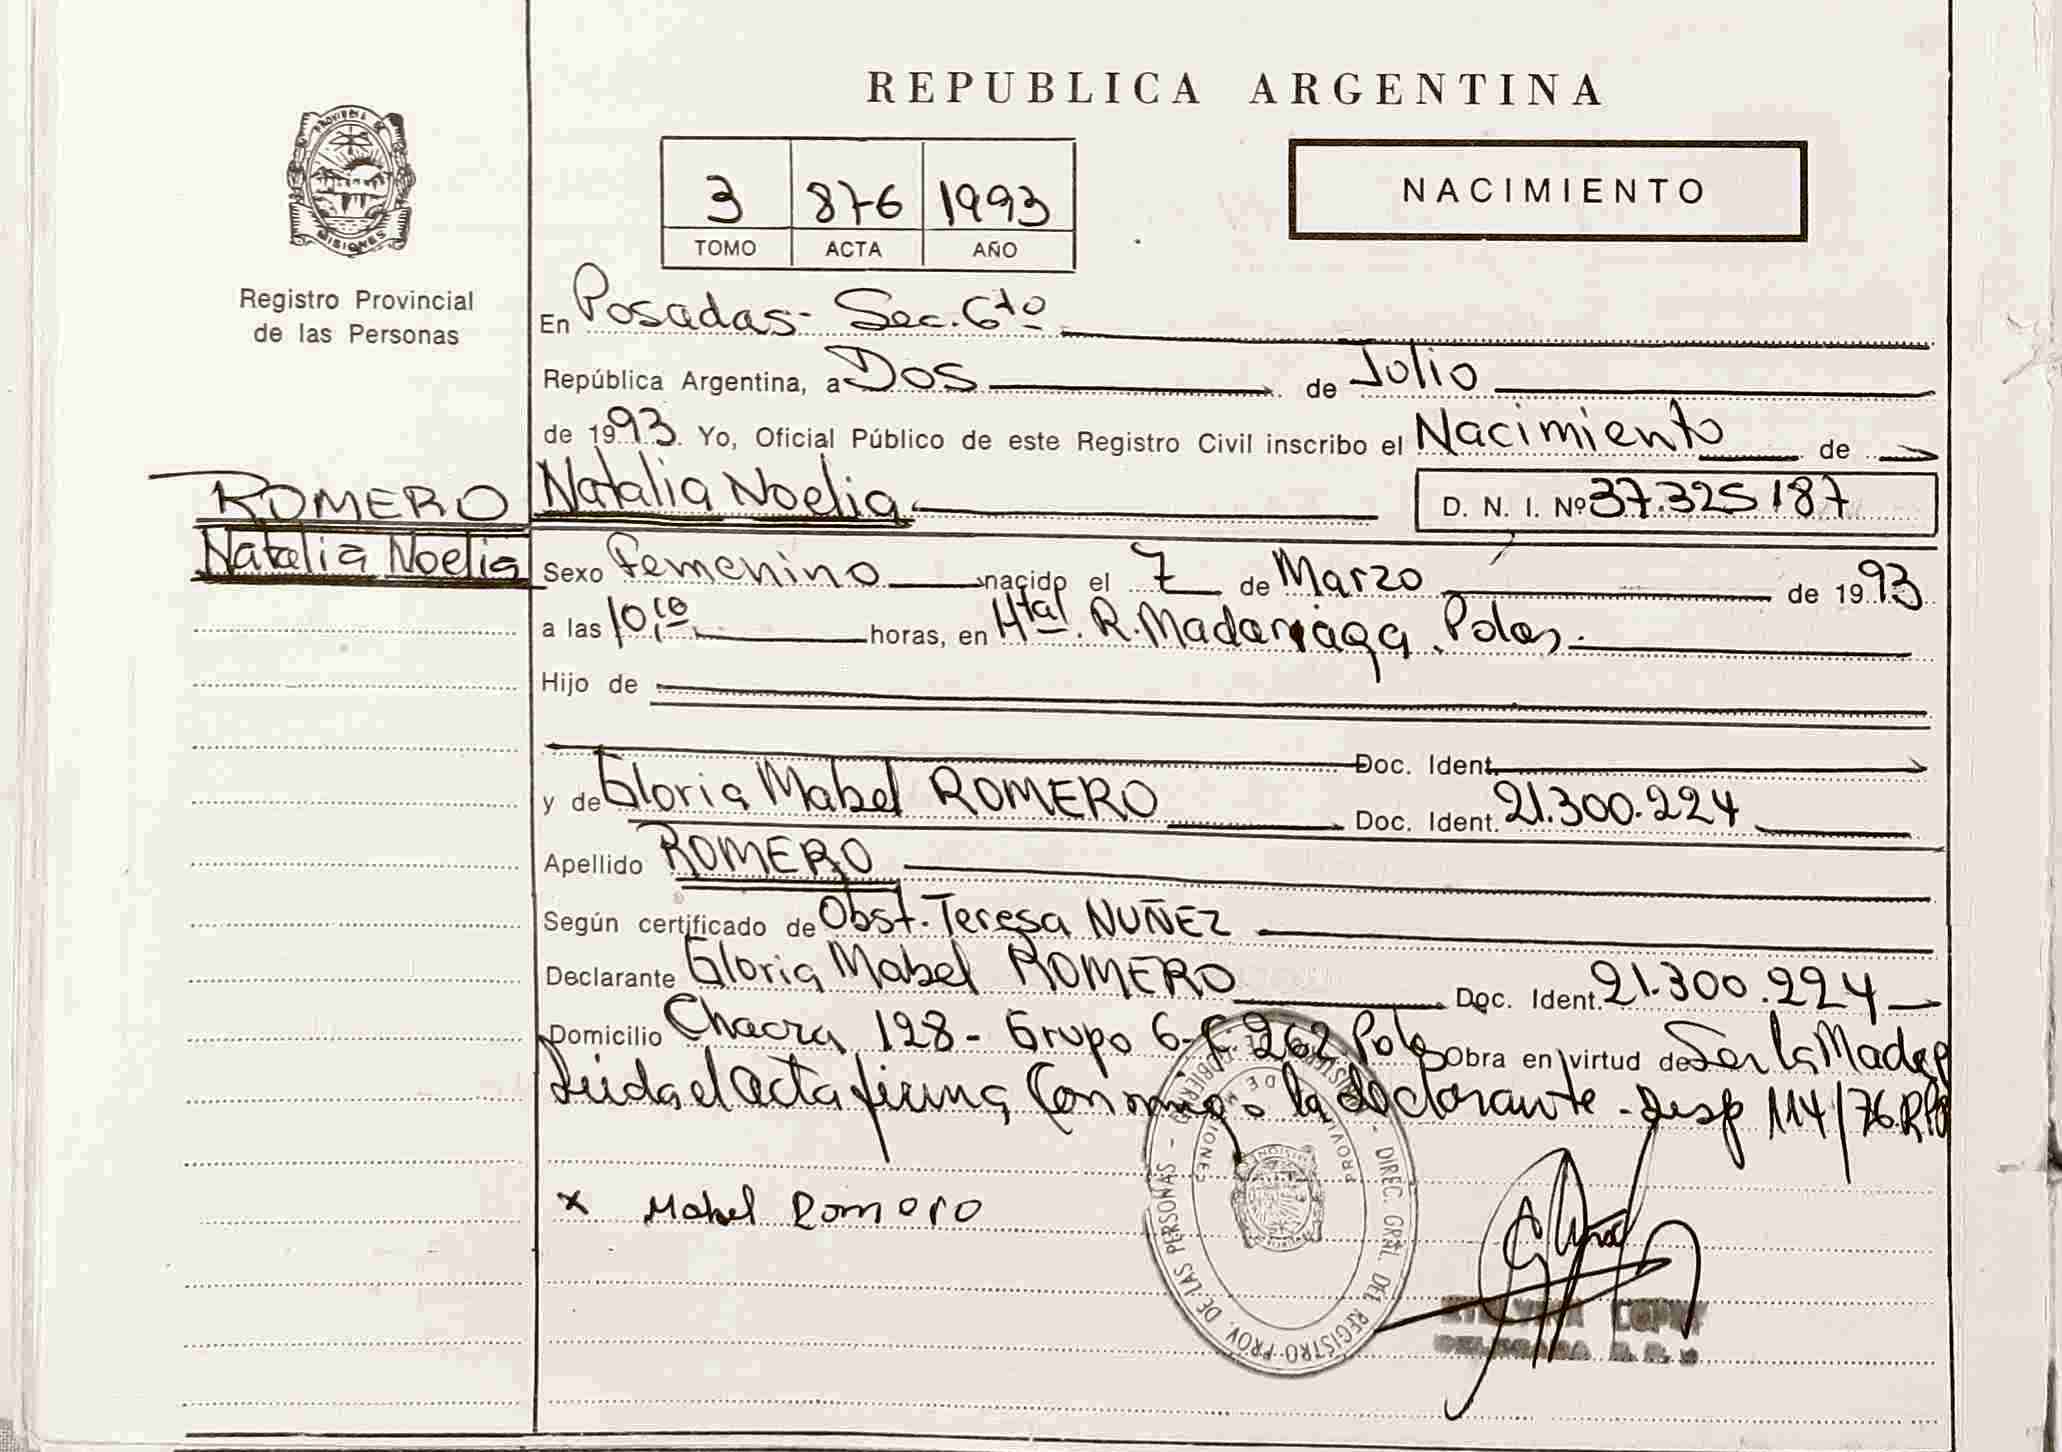 REPUBLICA ARGENTINA
PROVINCIA DE
MISIONES
Registro Provincial
de las Personas
3 876 1993
TOMO ACTA AÑO
NACIMIENTO
En Posadas - Sec. 6to
República Argentina, a Dos de Julio
de 1993. Yo, Oficial Público de este Registro Civil inscribo el Nacimiento de
ROMERO
Natalia Noelia
Natalia Noelia D. N. I. Nº 37.325187
Sexo Femenino nacido el 7 de Marzo de 1993
a las 10,10 horas, en Htal. R. Madariaga. Pdas.
Hijo de
Doc. Ident.
y de Gloria Mabel ROMERO Doc. Ident. 21.300.224
Apellido ROMERO
Según certificado de Obst. Teresa NUÑEZ
Declarante Gloria Mabel ROMERO Doc. Ident. 21.300.224
Domicilio Chacra 128 - Grupo 6 - 262 Pdas Obra en virtud de Ser la Madre
Leida el acta firma Conmigo la declarante - Disp 114/76.R.P.P
x Mabel Romero
DIREC. GRAL. DEL REGISTRO PROV. DE LAS PERSONAS
PROVINCIA DE MISIONES